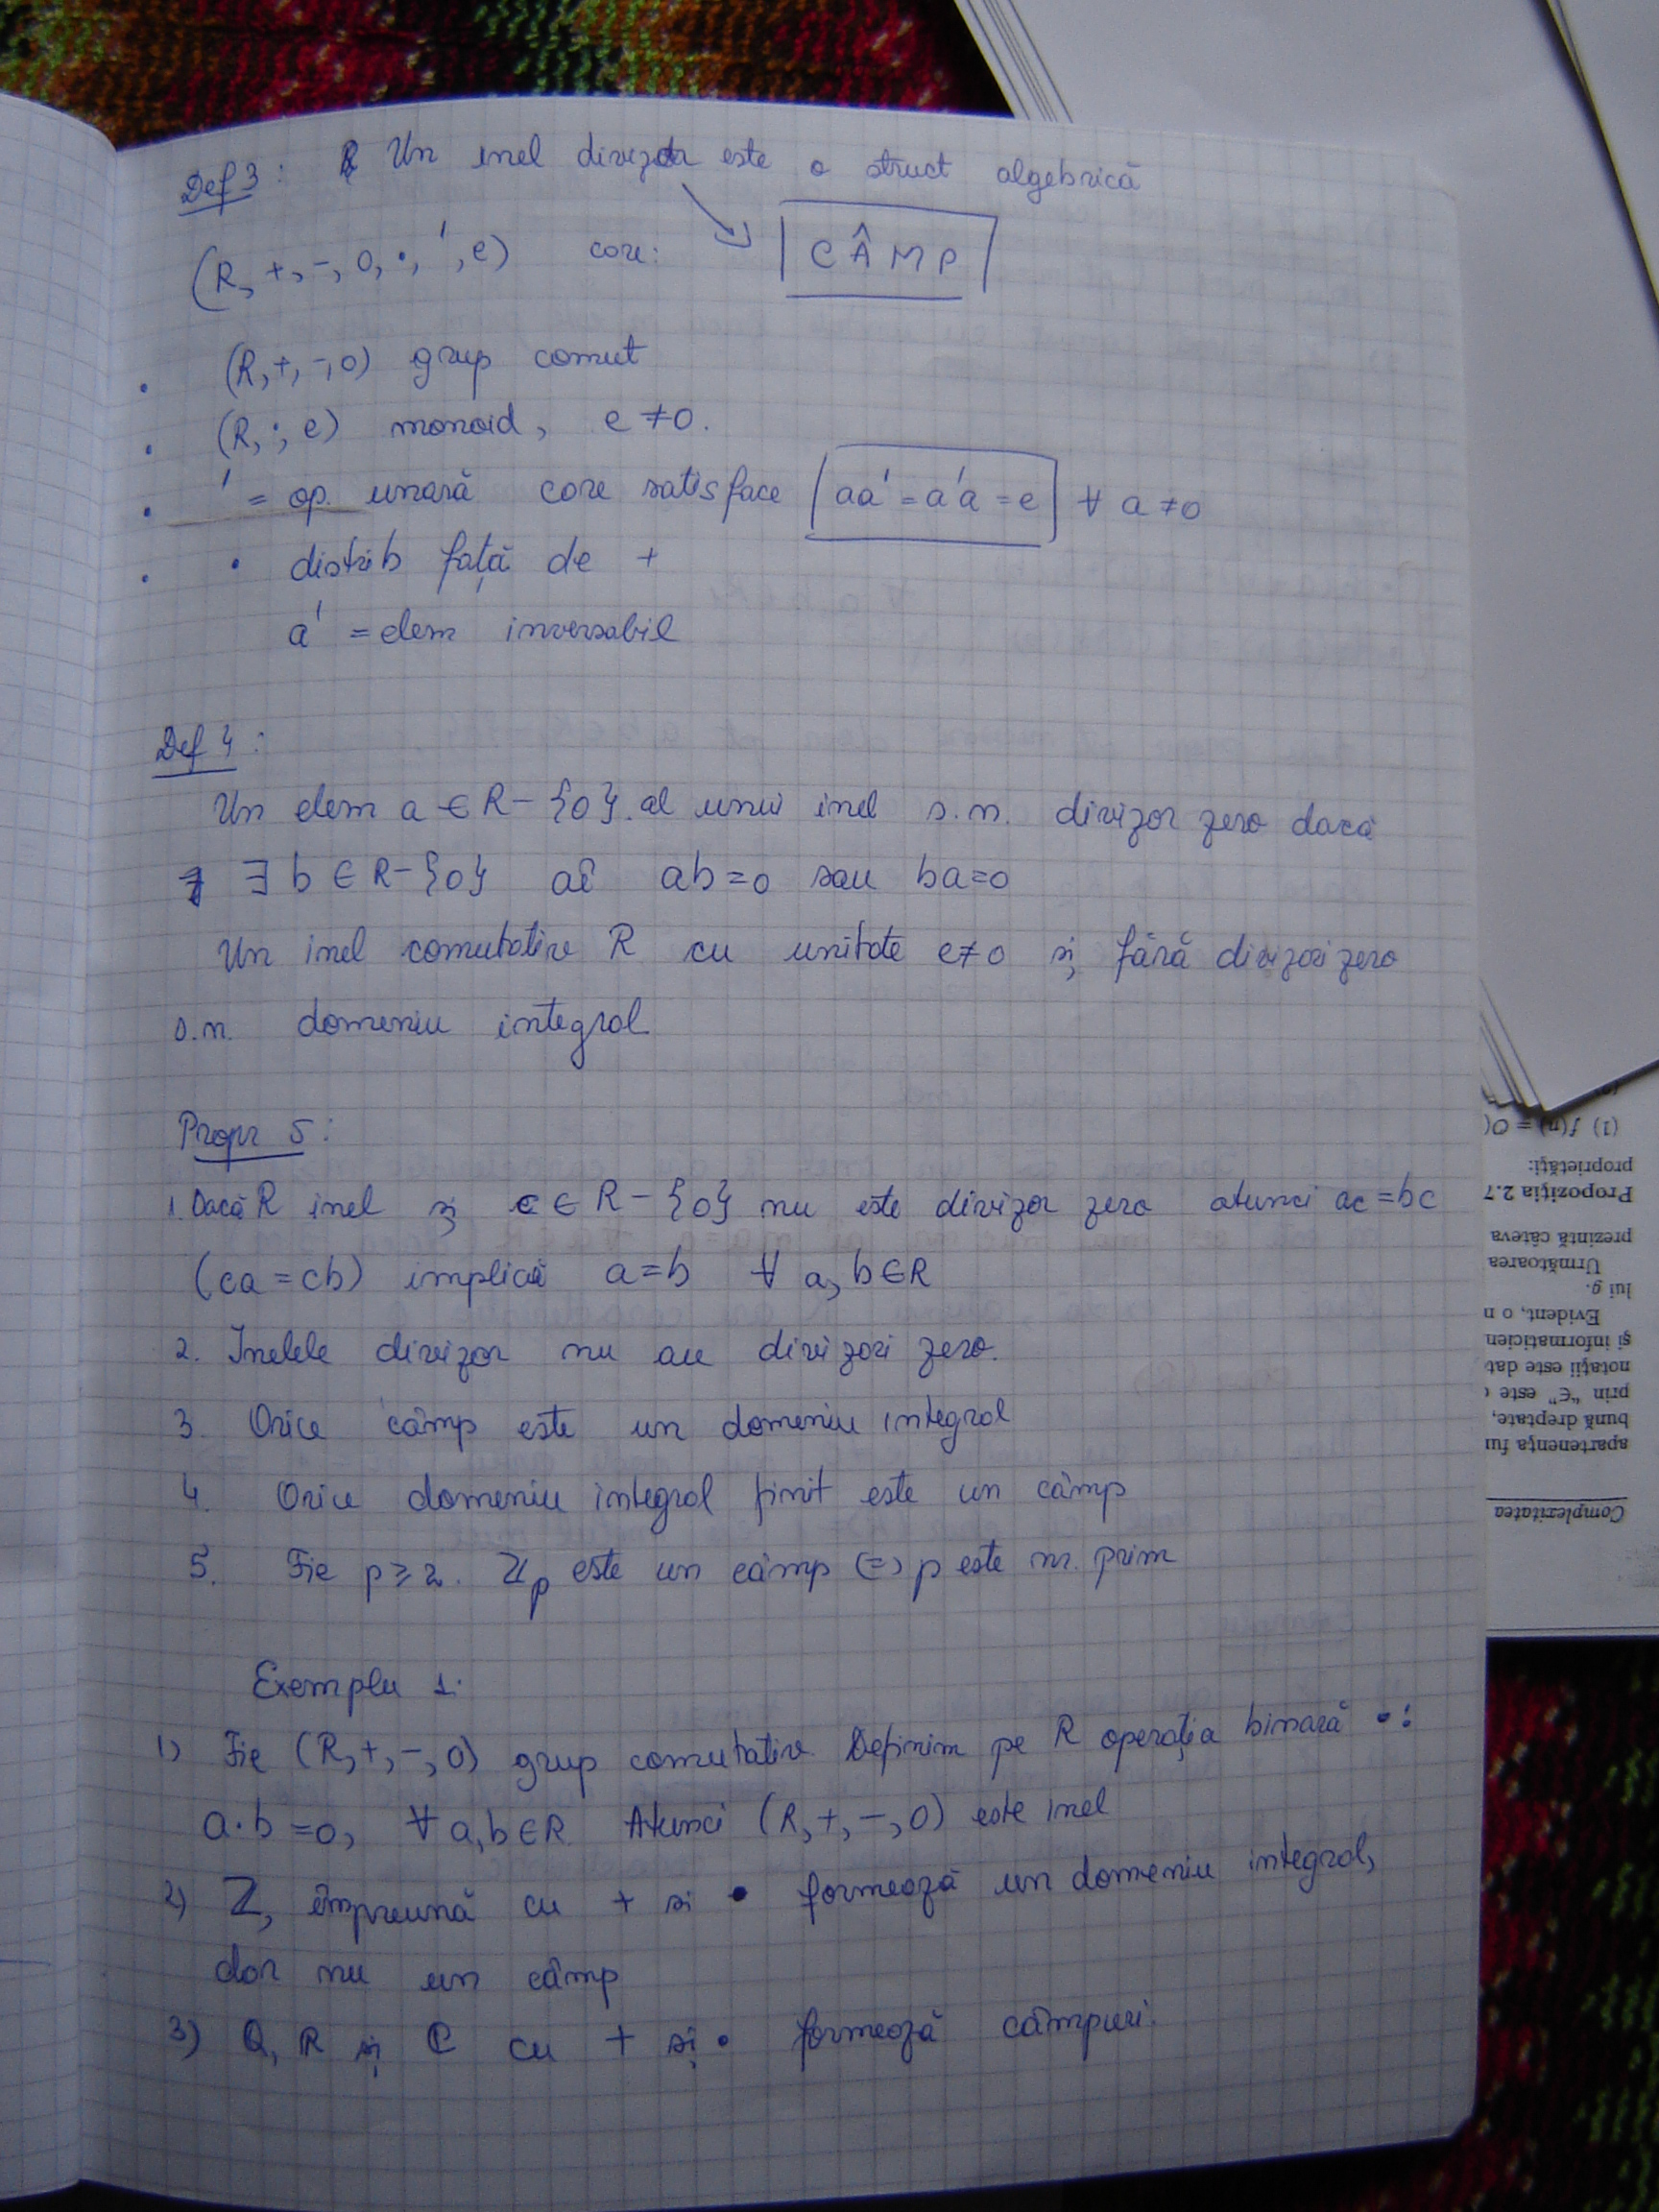 Def 3: Un inel divizor este o struct algebrică
(R, +, -, 0, ·, ', e) care: CÂMP
· (R, +, -, 0) grup comut
· (R, ·, e) monoid, e ≠ 0.
· ' = op. unară care satisface aa' = a'a = e ∀ a ≠ 0
· · distrib față de +
a' = elem inversabil
Def 4:
Un elem a ∈ R - {0} al unui inel s.n. divizor zero dacă
∃ b ∈ R - {0} aî ab = 0 sau ba = 0
Un inel comutativ R cu unitate e ≠ 0 și fără divizori zero
s.n. domeniu integral
Propr 5:
1. Dacă R inel și c ∈ R - {0} nu este divizor zero atunci ac = bc
(ca = cb) implică a = b ∀ a, b ∈ R
2. Inelele divizor nu au divizori zero.
3. Orice câmp este un domeniu integral
4. Orice domeniu integral finit este un câmp
5. Fie p ≥ 2. Zp este un câmp (=) p este nr. prim
Exemplu 1:
1) Fie (R, +, -, 0) grup comutativ. Definim pe R operația binară ·:
a · b = 0, ∀ a, b ∈ R. Atunci (R, +, -, 0) este inel
2) Z, împreună cu + și · formează un domeniu integral,
dar nu un câmp
3) Q, R și C cu + și · formează câmpuri.
Complexitatea
apartenența fu
bună dreptate,
prin "∈" este
notații este dat
și informaticien
Evident, o n
lui g.
Următoarea
prezintă câteva
Propoziția 2.7
proprietăți:
(1) f(n) = O(